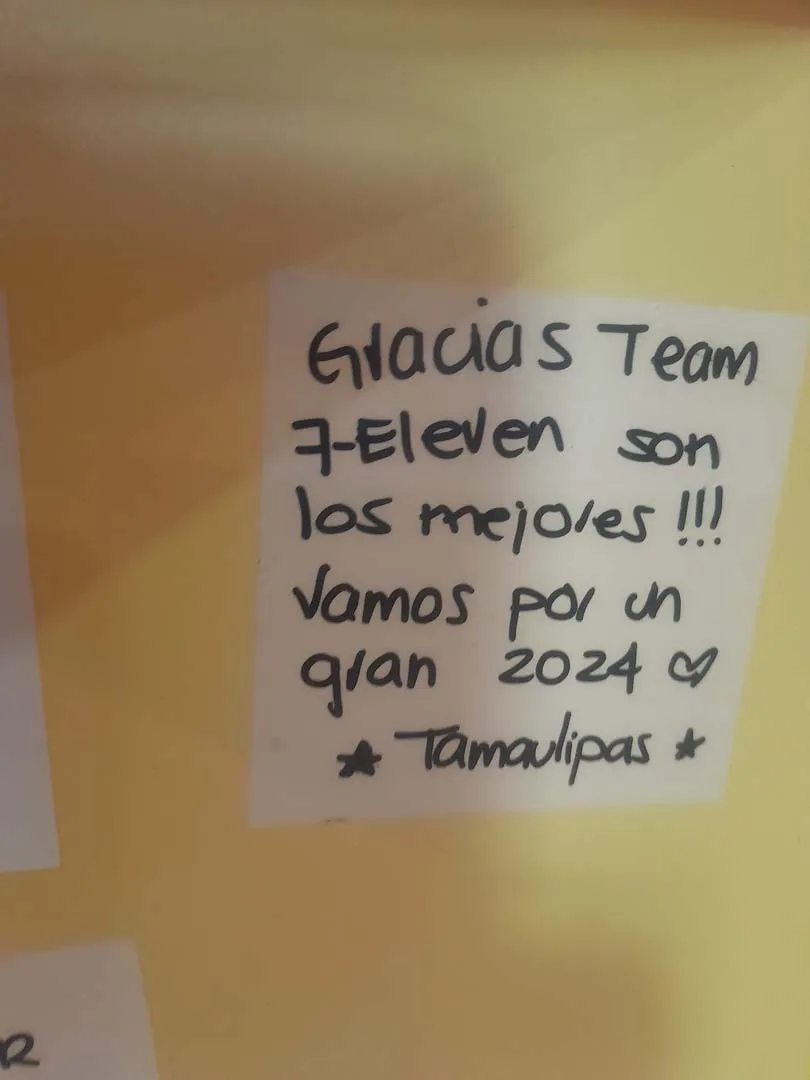 Gracias Team
7-Eleven son
los mejores !!!
Vamos por un
gran 2024 ♡
★ Tamaulipas ★
R